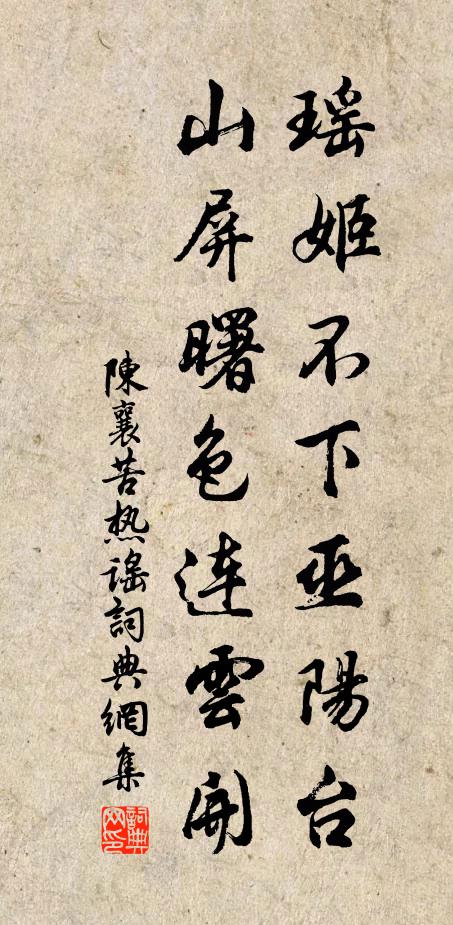 瑶姬不下巫陽台
山屏曙色連雲開
陳襄苦热謠詞典網集
詞典网印